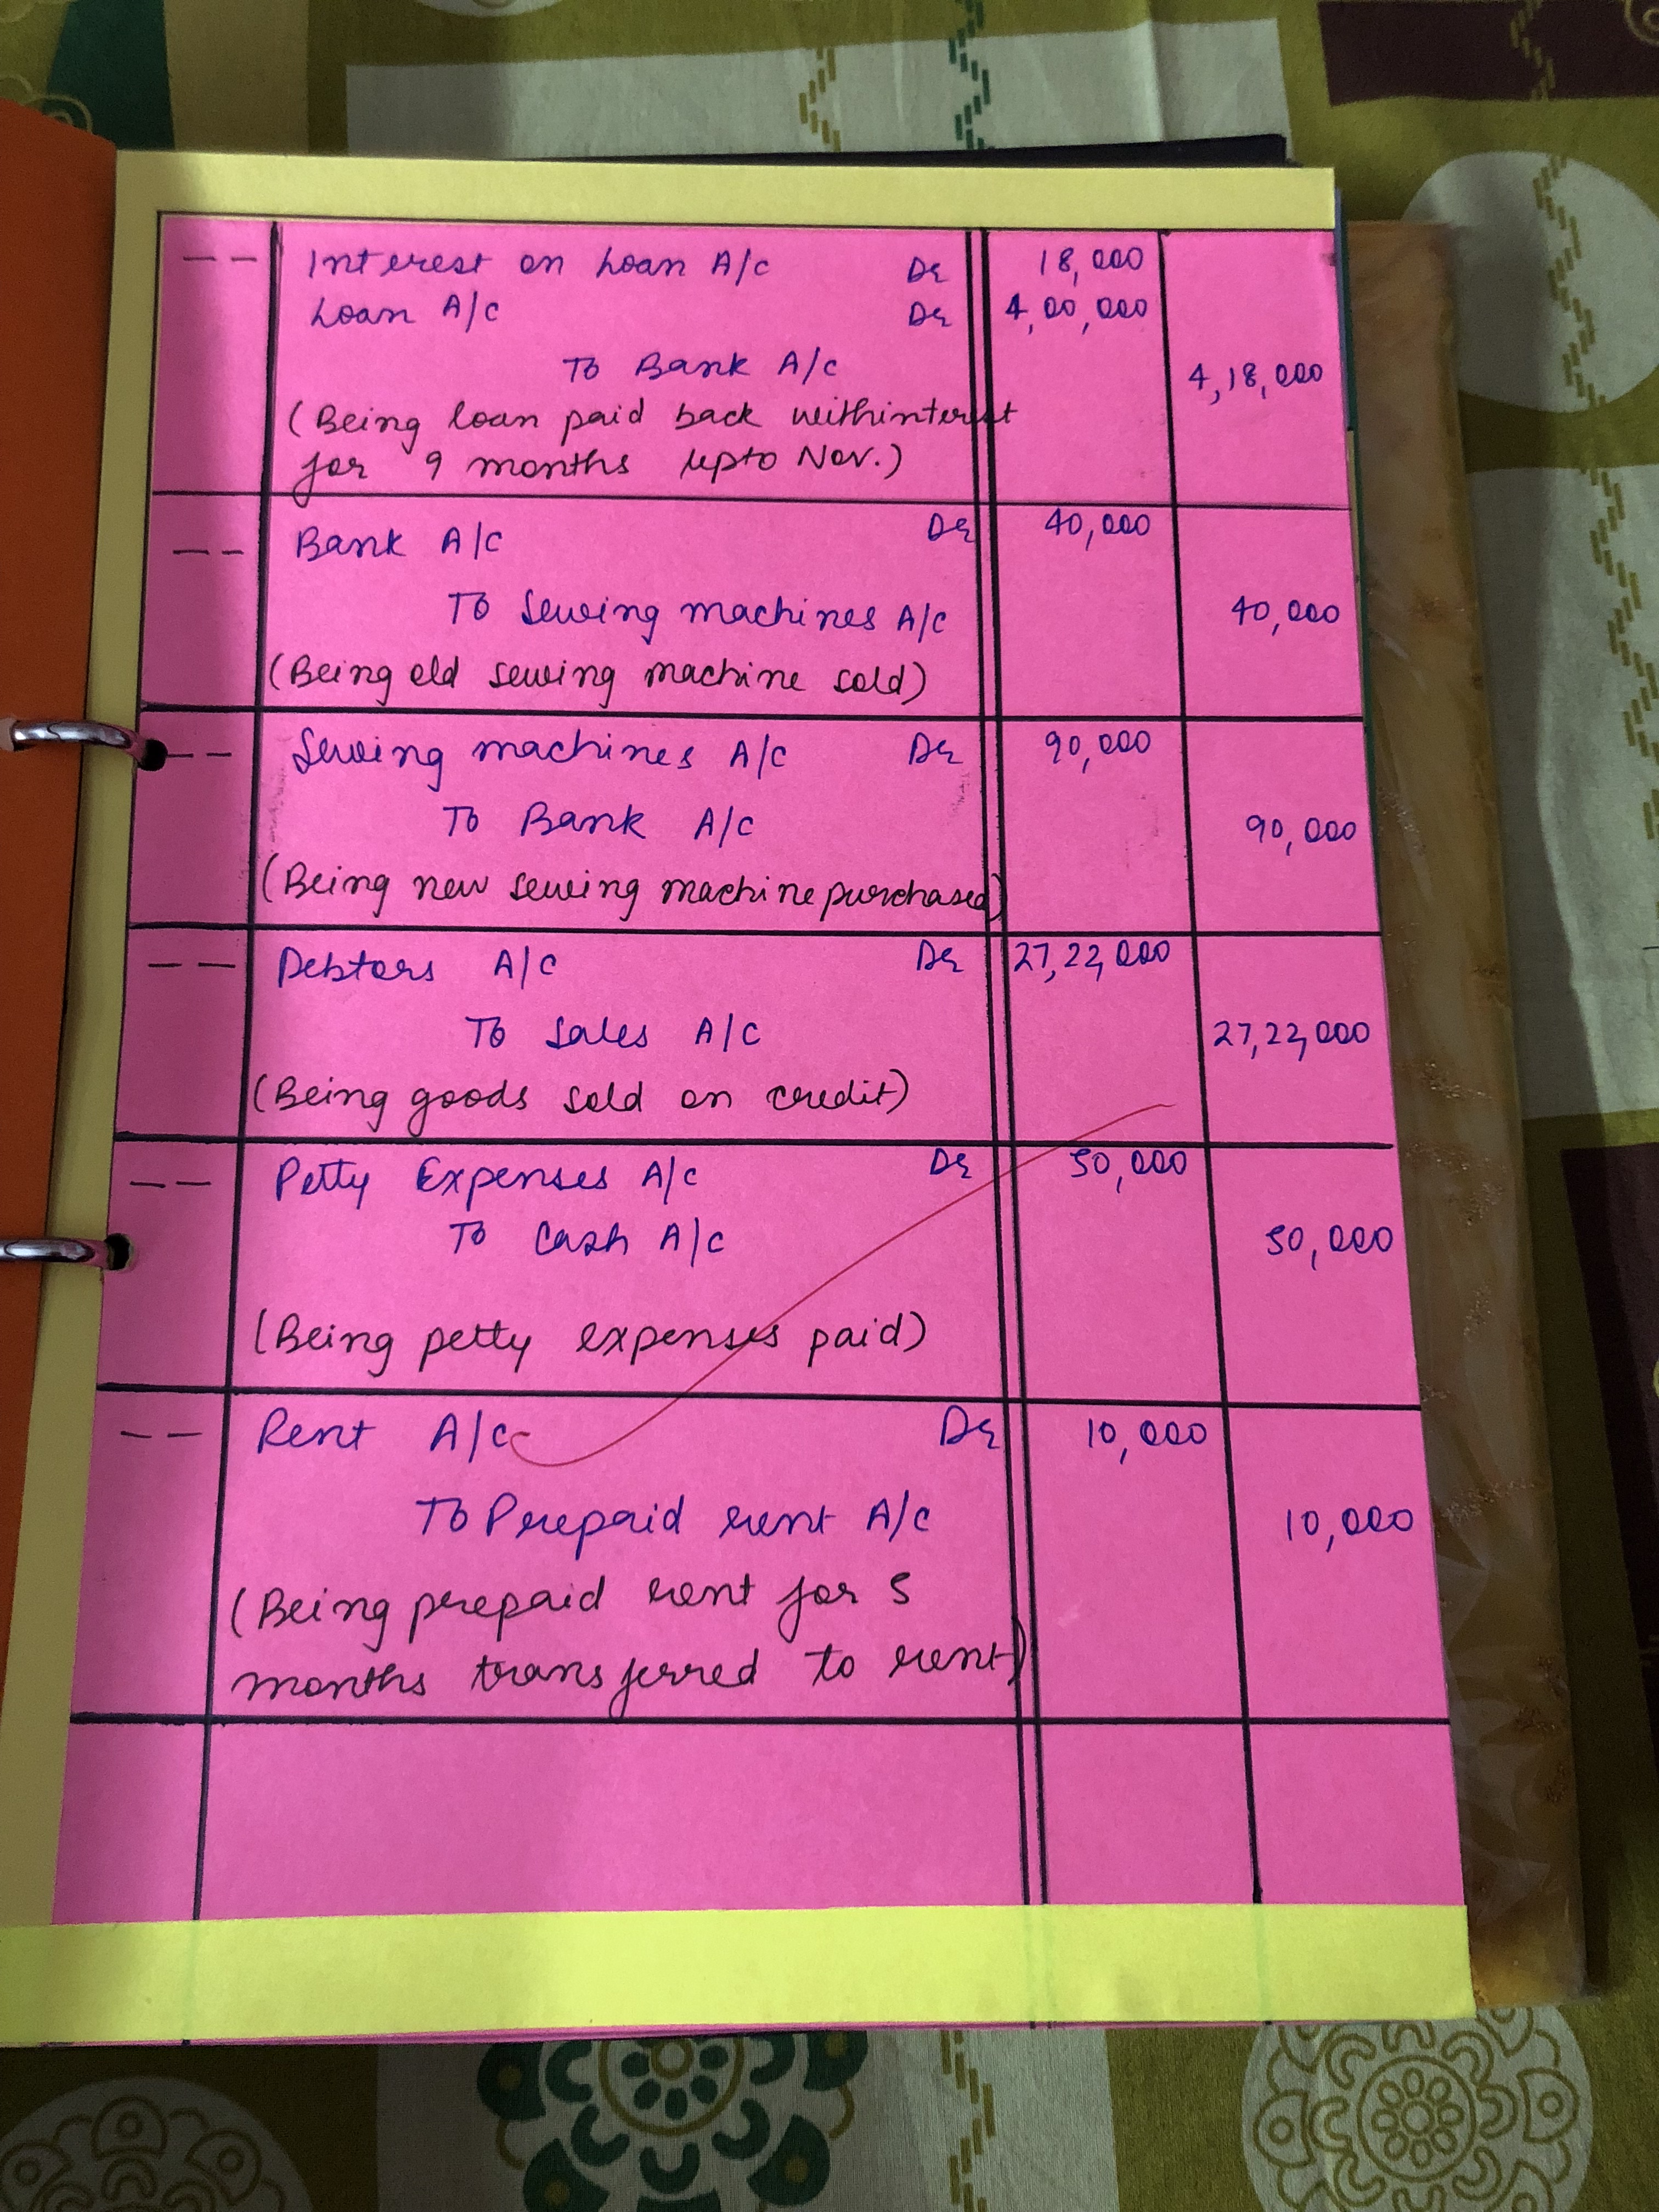 -- Interest on Loan A/c Dr 18,000
Loan A/c Dr 4,00,000
To Bank A/c 4,18,000
(Being loan paid back withinterest
for 9 months upto Nov.)
-- Bank A/c Dr 40,000
To Sewing machines A/c 40,000
(Being old sewing machine sold)
-- Sewing machines A/c Dr 90,000
To Bank A/c 90,000
(Being new sewing machine purchased)
-- Debtors A/c Dr 27,22,000
To Sales A/c 27,22,000
(Being goods sold on credit)
-- Petty Expenses A/c Dr 50,000
To Cash A/c 50,000
(Being petty expenses paid)
-- Rent A/c Dr 10,000
To Prepaid rent A/c 10,000
(Being prepaid rent for 5
months transferred to rent)